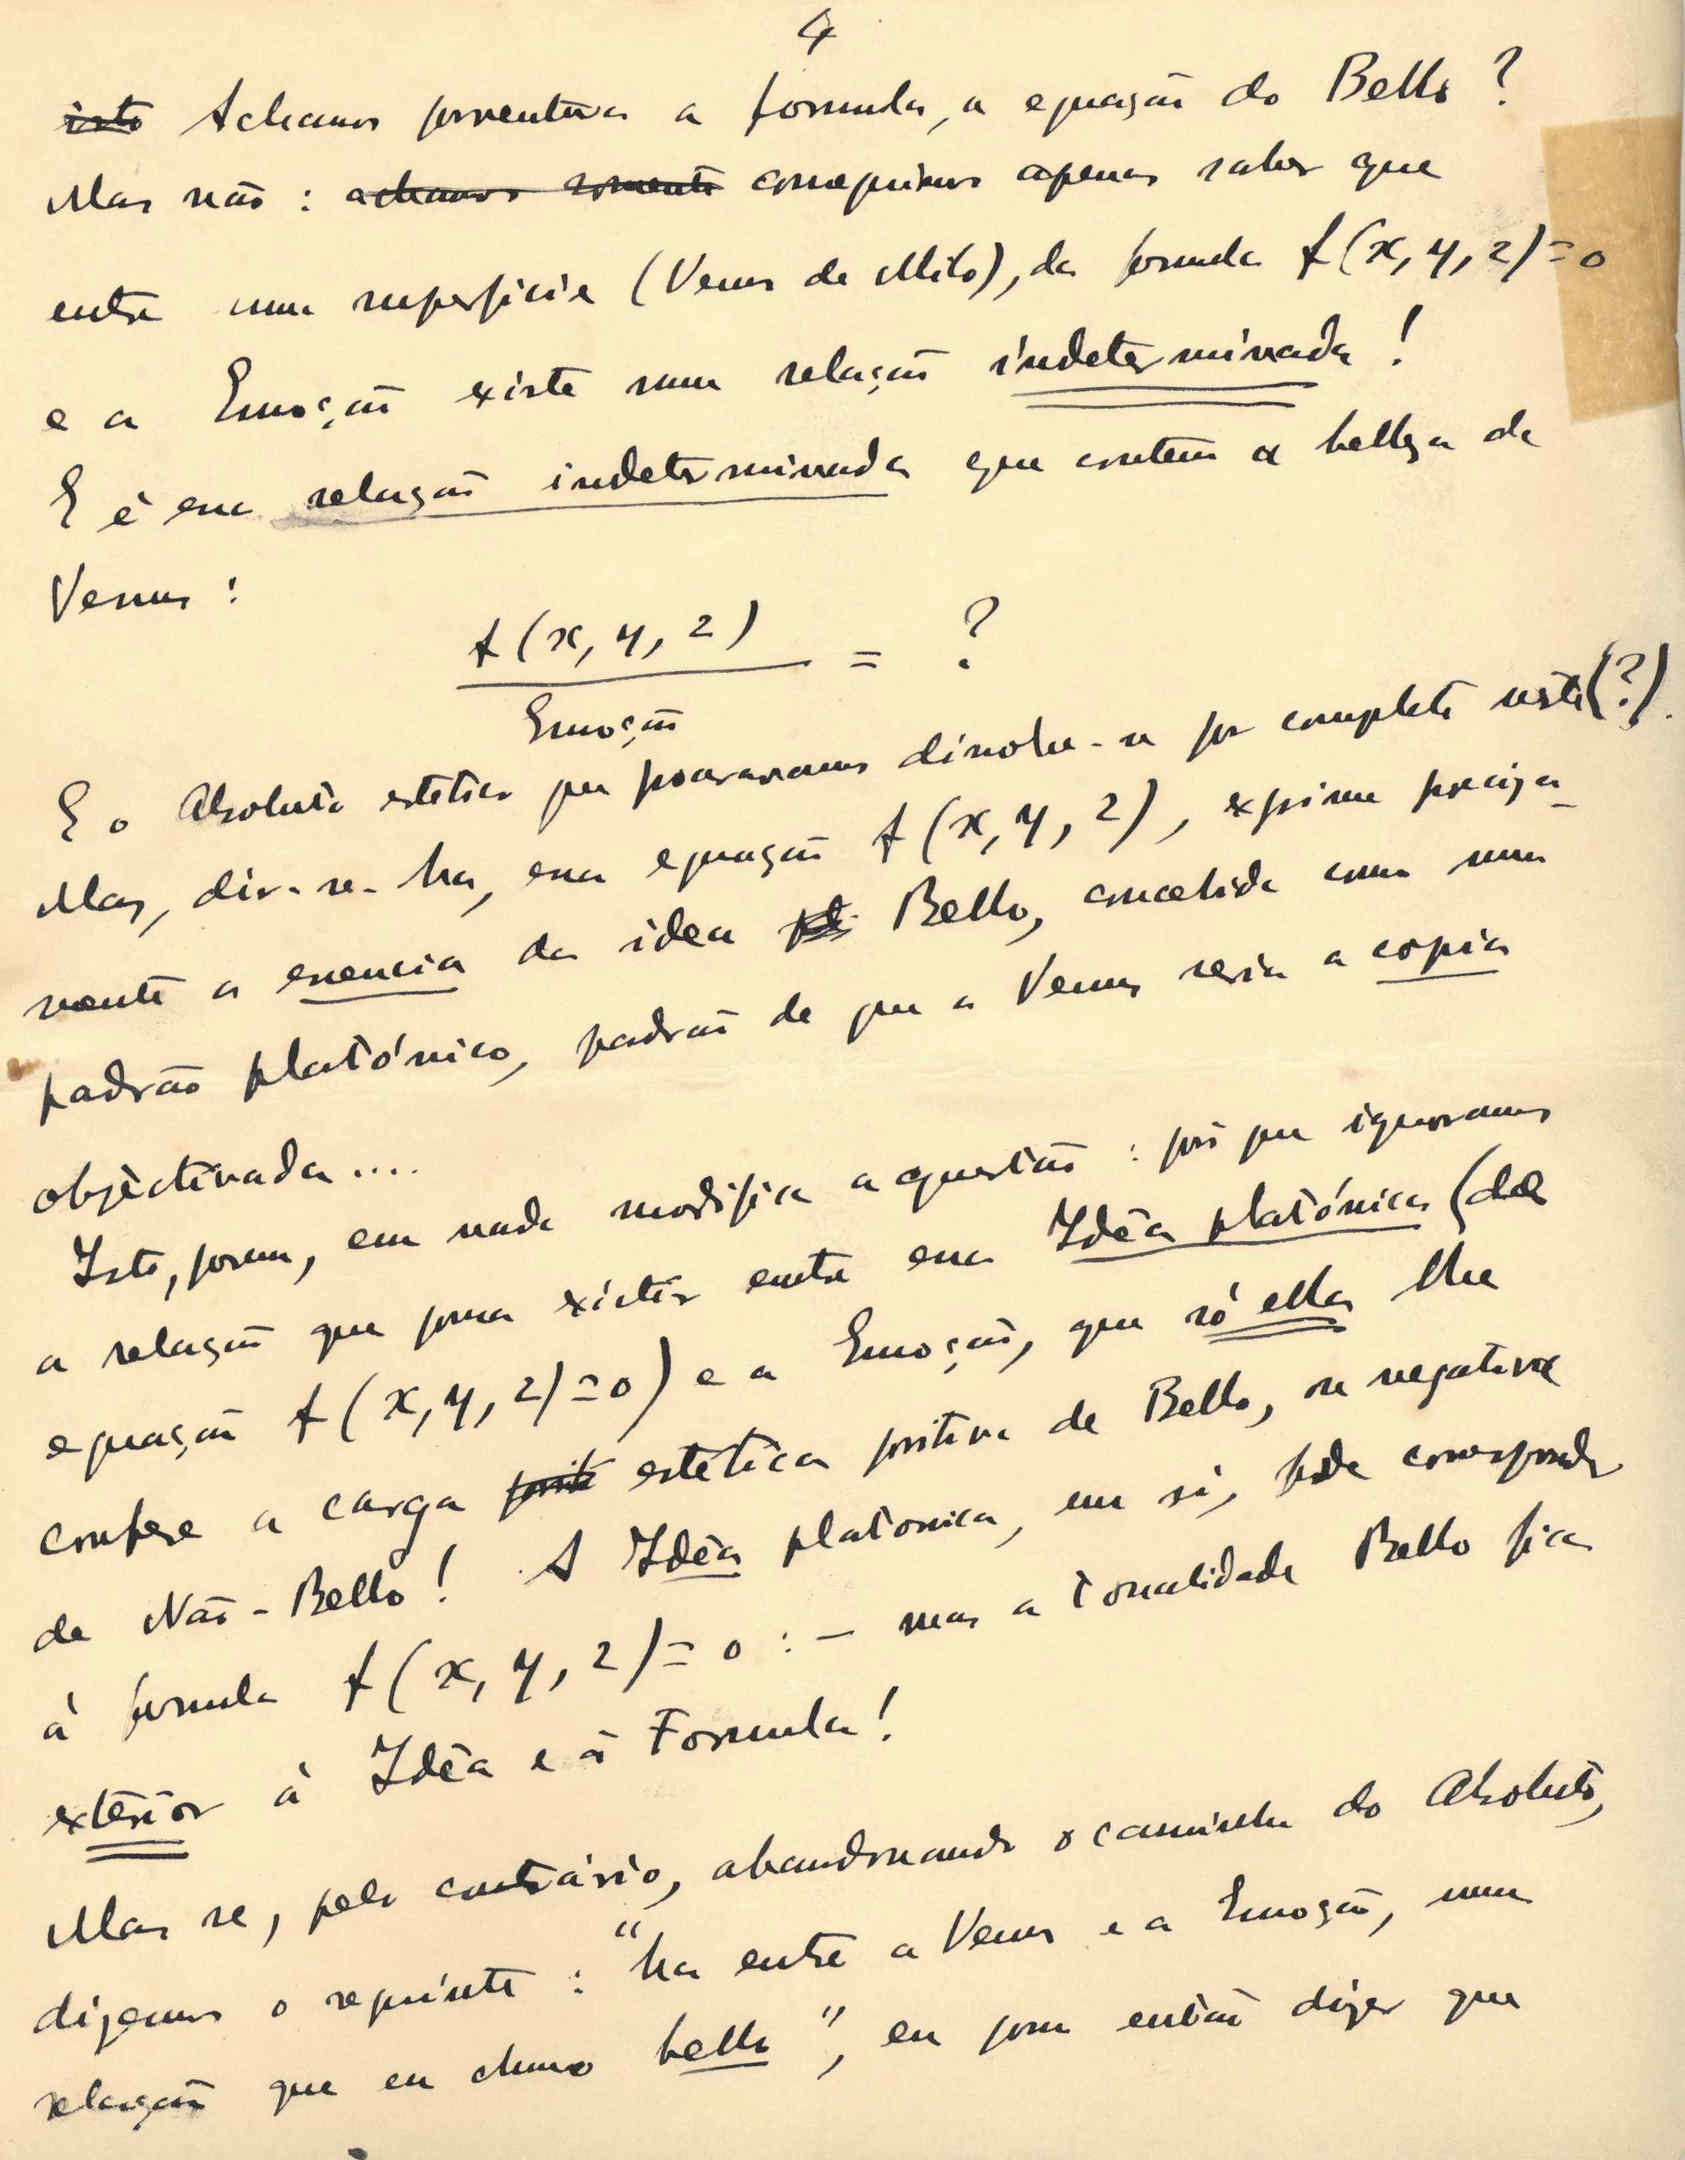 4
isto Achamos porventura a formula, a equação do Bello ?
Mas não : achamos somente conseguimos apenas saber que
entre uma superficie (Venus de Milo), da formula f(x, y, z)=0
e a Emoção existe uma relação indeterminada !
E é essa relação indeterminada que contem a belleza da
Venus :
f(x, y, z)
= ?
Emoção
E o Absoluto estetico que procuravamos dissolve-se por completo neste (?).
Mas, dir-se-ha, essa equação f(x, y, z), exprime precisa-
mente a essencia da idea de Bello, concebida como um
padrão platónico, padrão de que a Venus seria a copia
objectivada....
Isto, porem, em nada modifica a questão : pois que ignoramos
a relação que possa existir entre essa Idêa platónica (da
equação f(x, y, z)=0) e a Emoção, que só ella lhe
confere a carga estética positiva de Bello, ou negativa
de Não-Bello ! A Idêa platonica, em si, póde corresponder
à formula f(x, y, z)=0 : – mas a tonalidade Bello fica
exterior à Idêa e à Formula !
Mas se, pelo contrário, abandonando o caminho do Absoluto,
dizemos o seguinte : "ha entre a Venus e a Emoção, uma
relação que eu chamo bello", eu posso então dizer que